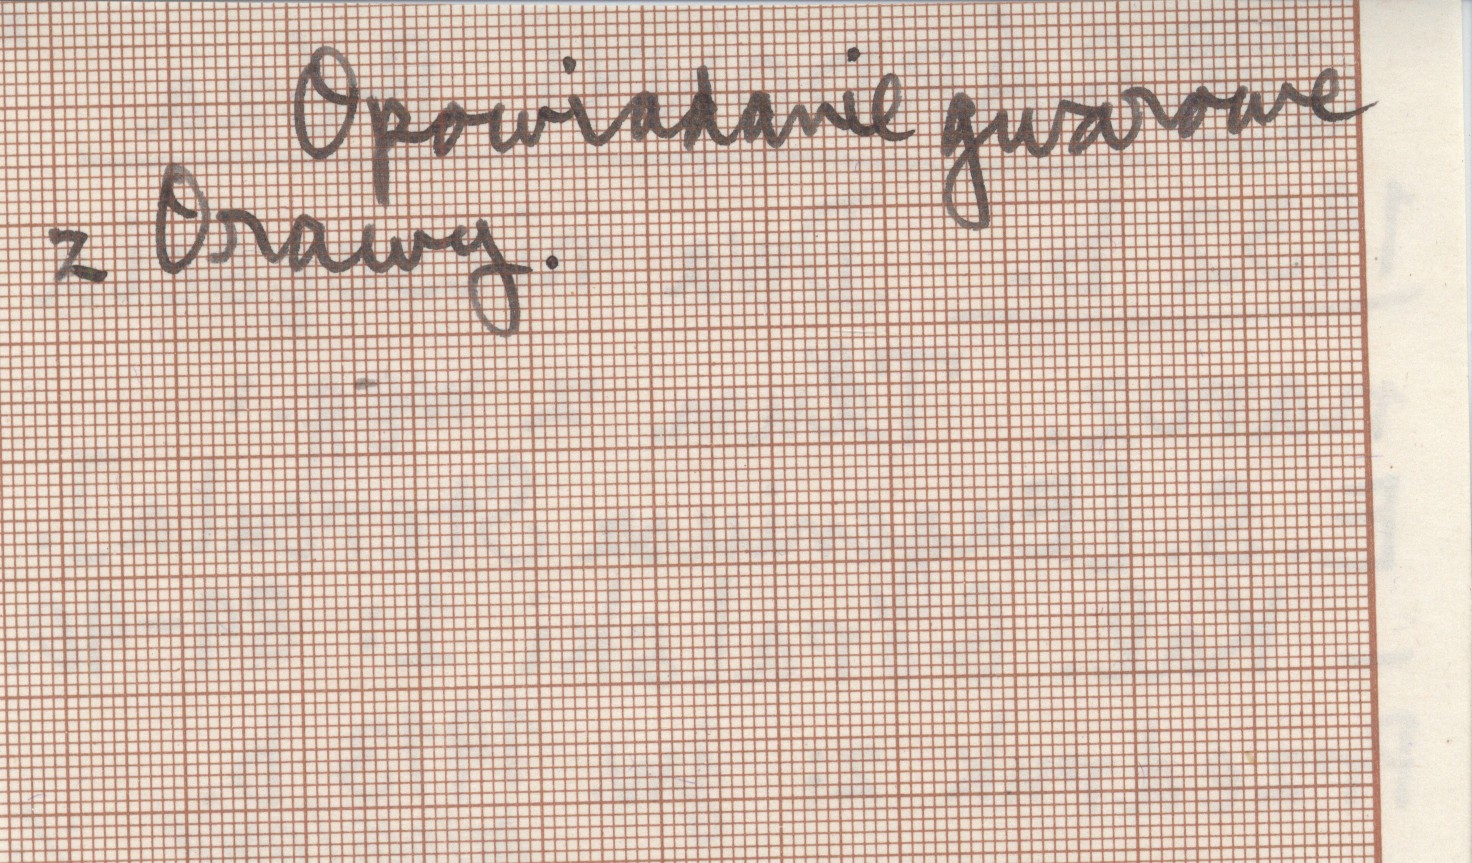 Opowiadanie gwarowe
z Orawy.